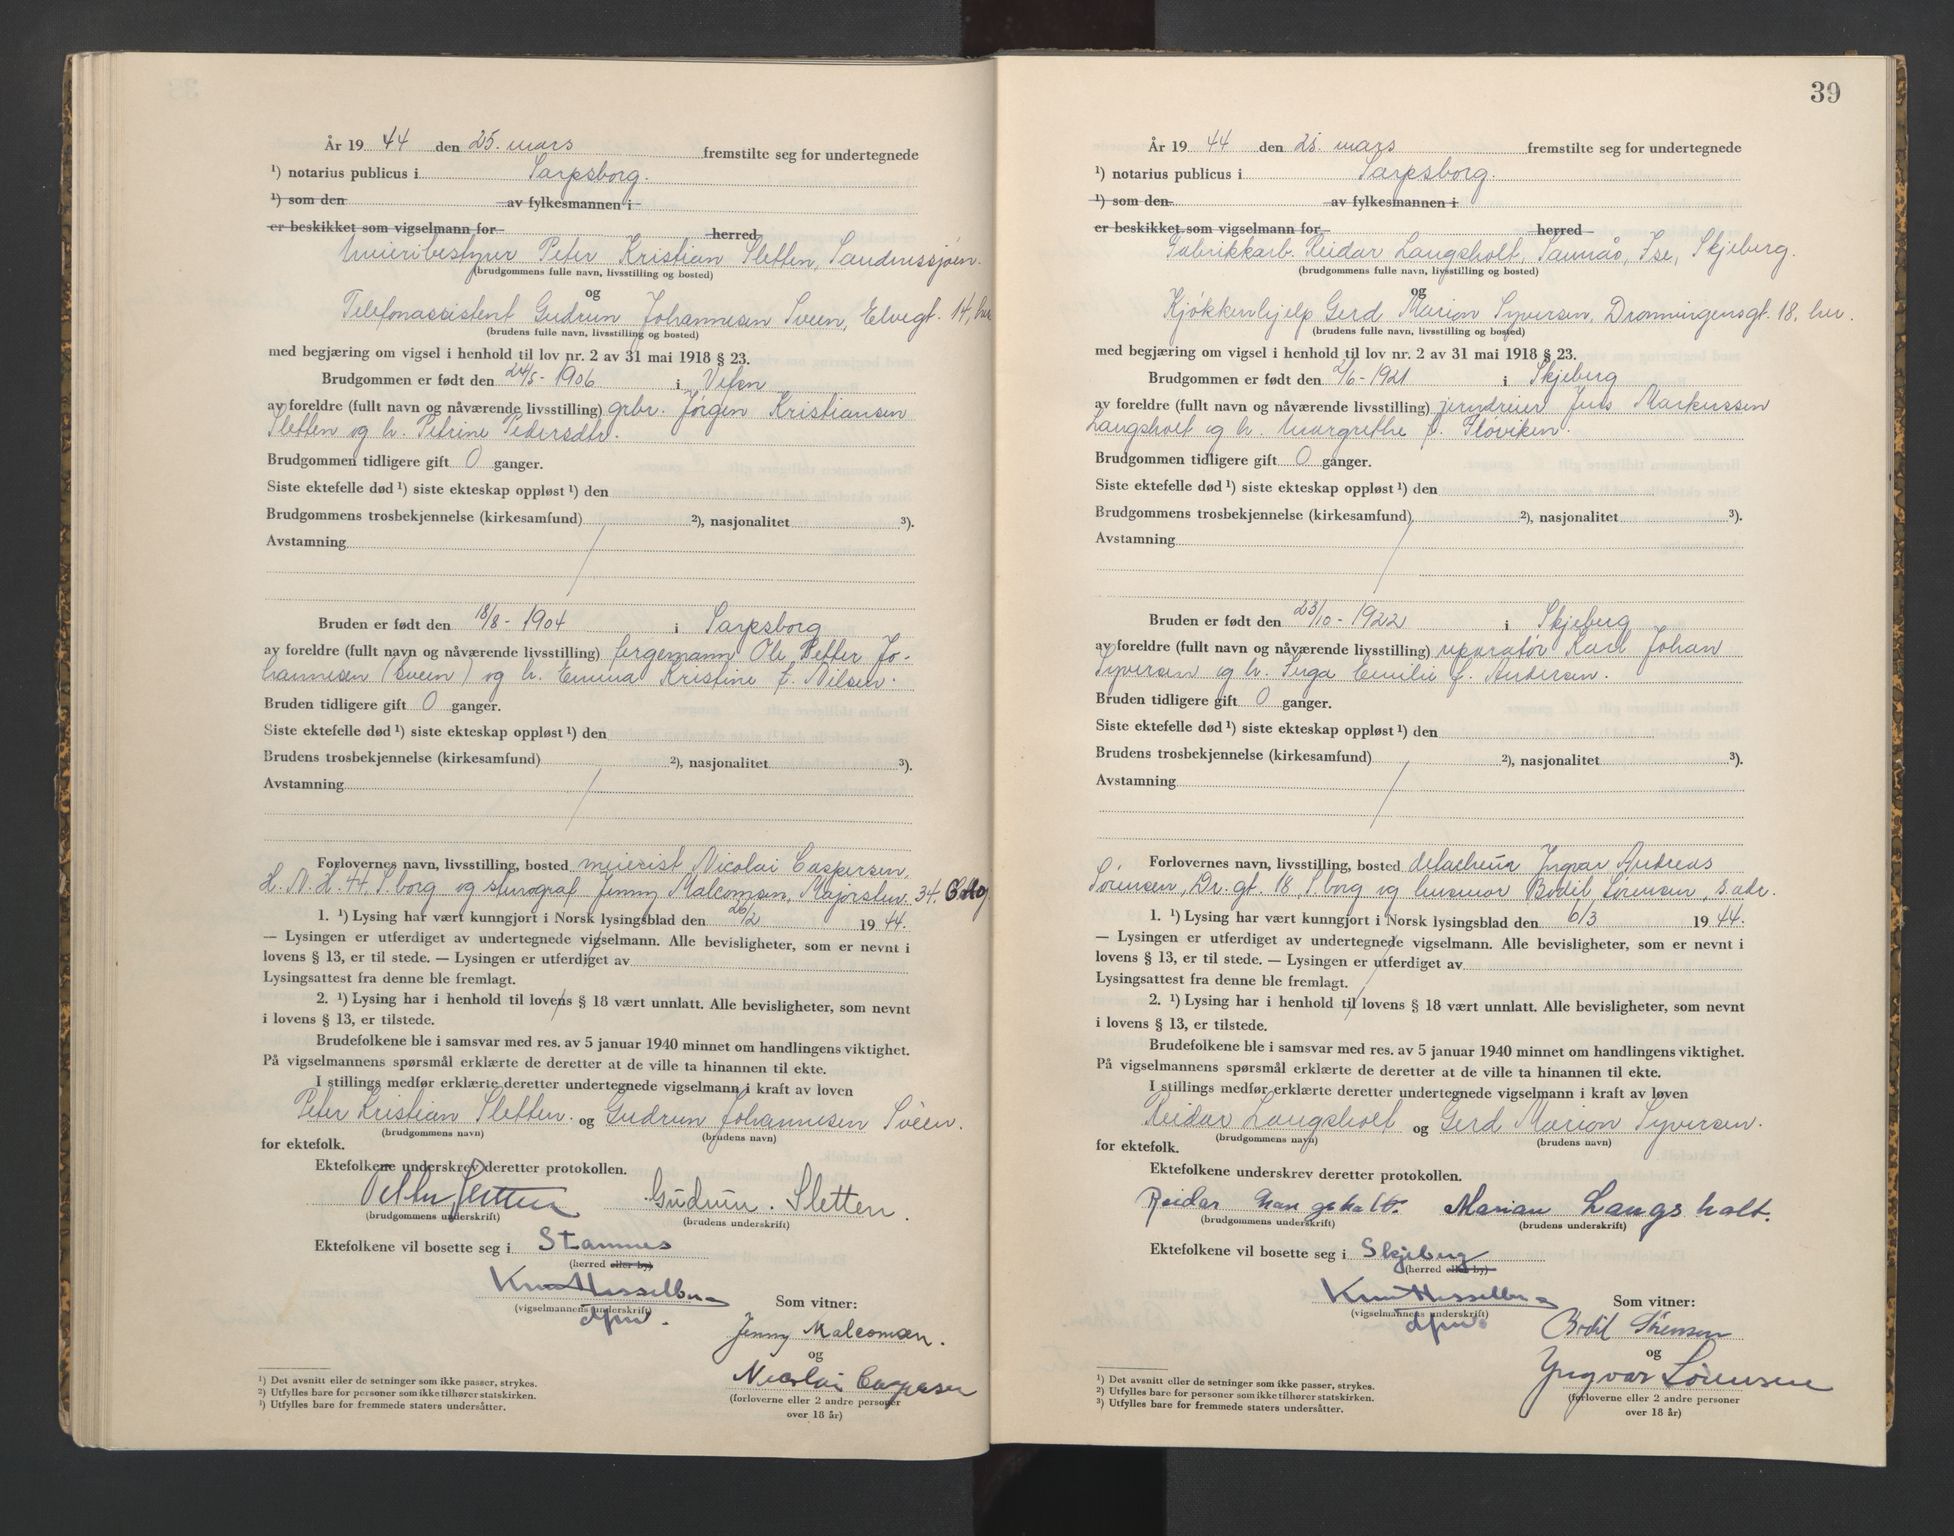 År 19 44 den 25. mars fremstilte seg for undertegnede
¹) notarius publicus i Sarpsborg.
¹) som den av fylkesmannen i
er beskikket som vigselmann for herred
Meieribestyrer Peter Kristian Sletten, Sandnessjøen.
(brudgommens fulle navn, livsstilling og bosted)
og
Telefonassistent Gudrun Johannesen Sveen, Elvegt. 14, her
(brudens fulle navn, livsstilling og bosted)
med begjæring om vigsel i henhold til lov nr. 2 av 31 mai 1918 § 23.
Brudgommen er født den 24/5 - 1906 i Vefsn
av foreldre (fullt navn og nåværende livsstilling) grbr. Jørgen Kristiansen
Sletten og h. Petrine Pedersdtr.
Brudgommen tidligere gift 0 ganger.
Siste ektefelle død ¹) siste ekteskap oppløst ¹) den
Brudgommens trosbekjennelse (kirkesamfund) ²), nasjonalitet ³).
Avstamning
Bruden er født den 18/8 - 1904 i Sarpsborg
av foreldre (fullt navn og nåværende livsstilling) fergemann Ole Petter Jo-
hannesen (Sveen) og h. Emma Kristine f. Nilsen.
Bruden tidligere gift 0 ganger.
Siste ektefelle død ¹) siste ekteskap oppløst ¹) den
Brudens trosbekjennelse (kirkesamfund) ²), nasjonalitet ³).
Avstamning
Forlovernes navn, livsstilling, bosted meierist Nicolai Caspersen,
H. N. H. 44, S.borg og stenograf Jenny Malcomsen, Majorstuv. 34.
1. ¹) Lysing har vært kunngjort i Norsk lysingsblad den 26/2 19 44.
— Lysingen er utferdiget av undertegnede vigselmann. Alle bevisligheter, som er nevnt i
lovens § 13, er til stede. — Lysingen er utferdiget av
Lysingsattest fra denne ble fremlagt.
2. ¹) Lysing har i henhold til lovens § 18 vært unnlatt. Alle bevisligheter, som nevnt
i lovens § 13, er tilstede.
Brudefolkene ble i samsvar med res. av 5 januar 1940 minnet om handlingens viktighet.
På vigselmannens spørsmål erklærte de deretter at de ville ta hinannen til ekte.
I stillings medfør erklærte deretter undertegnede vigselmann i kraft av loven
Peter Kristian Sletten. og Gudrun Johannesen Sveen.
(brudgommens navn) (brudens navn)
for ektefolk.
Ektefolkene underskrev deretter protokollen.
Petter Sletten Gudrun. Sletten.
(brudgommens underskrift) (brudens underskrift)
Ektefolkene vil bosette seg i Stamnes
(herred eller by)
(vigselmannens underskrift) Som vitner:
dfm.
Jenny Malcomsen.
og
Nicolai Caspersen
(forloverne eller 2 andre personer
over 18 år)
¹) Det avsnitt eller de setninger som ikke passer, strykes.
²) Utfylles bare for personer som ikke tilhører statskirken.
³) Utfylles bare for fremmede staters undersåtter.
39
År 19 44 den 25. mars fremstilte seg for undertegnede
¹) notarius publicus i Sarpsborg.
¹) som den av fylkesmannen i
er beskikket som vigselmann for herred
Fabrikkarb. Reidar Langsholt, Sannås, Ise, Skjeberg.
(brudgommens fulle navn, livsstilling og bosted)
og
Kjøkkenhjelp Gerd Marion Syversen, Dronningensgt. 18, her.
(brudens fulle navn, livsstilling og bosted)
med begjæring om vigsel i henhold til lov nr. 2 av 31 mai 1918 § 23.
Brudgommen er født den 2/6 - 1921 i Skjeberg
av foreldre (fullt navn og nåværende livsstilling) jerndreier Jens Markussen
Langsholt og h. Margrethe f. Fløviken.
Brudgommen tidligere gift 0 ganger.
Siste ektefelle død ¹) siste ekteskap oppløst ¹) den
Brudgommens trosbekjennelse (kirkesamfund) ²), nasjonalitet ³).
Avstamning
Bruden er født den 23/10 - 1922 i Skjeberg
av foreldre (fullt navn og nåværende livsstilling) reparatør Karl Johan
Syversen og h. Inga Emilie f. Andersen.
Bruden tidligere gift 0 ganger.
Siste ektefelle død ¹) siste ekteskap oppløst ¹) den
Brudens trosbekjennelse (kirkesamfund) ²), nasjonalitet ³).
Avstamning
Forlovernes navn, livsstilling, bosted detacheur Yngvar Andreas
Sørensen, Dr. gt. 18, S.borg og husmor Bodil Sørensen, s. adr.
1. ¹) Lysing har vært kunngjort i Norsk lysingsblad den 6/3 19 44.
— Lysingen er utferdiget av undertegnede vigselmann. Alle bevisligheter, som er nevnt i
lovens § 13, er til stede. — Lysingen er utferdiget av
Lysingsattest fra denne ble fremlagt.
2. ¹) Lysing har i henhold til lovens § 18 vært unnlatt. Alle bevisligheter, som nevnt
i lovens § 13, er tilstede.
Brudefolkene ble i samsvar med res. av 5 januar 1940 minnet om handlingens viktighet.
På vigselmannens spørsmål erklærte de deretter at de ville ta hinannen til ekte.
I stillings medfør erklærte deretter undertegnede vigselmann i kraft av loven
Reidar Langsholt og Gerd Marion Syversen.
(brudgommens navn) (brudens navn)
for ektefolk.
Ektefolkene underskrev deretter protokollen.
Reidar Langsholt. Marian Langsholt.
(brudgommens underskrift) (brudens underskrift)
Ektefolkene vil bosette seg i Skjeberg
(herred eller by)
(vigselmannens underskrift) Som vitner:
dfm.
Bodil Sørensen
og
Yngvar Sørensen
(forloverne eller 2 andre personer
over 18 år)
¹) Det avsnitt eller de setninger som ikke passer, strykes.
²) Utfylles bare for personer som ikke tilhører statskirken.
³) Utfylles bare for fremmede staters undersåtter.